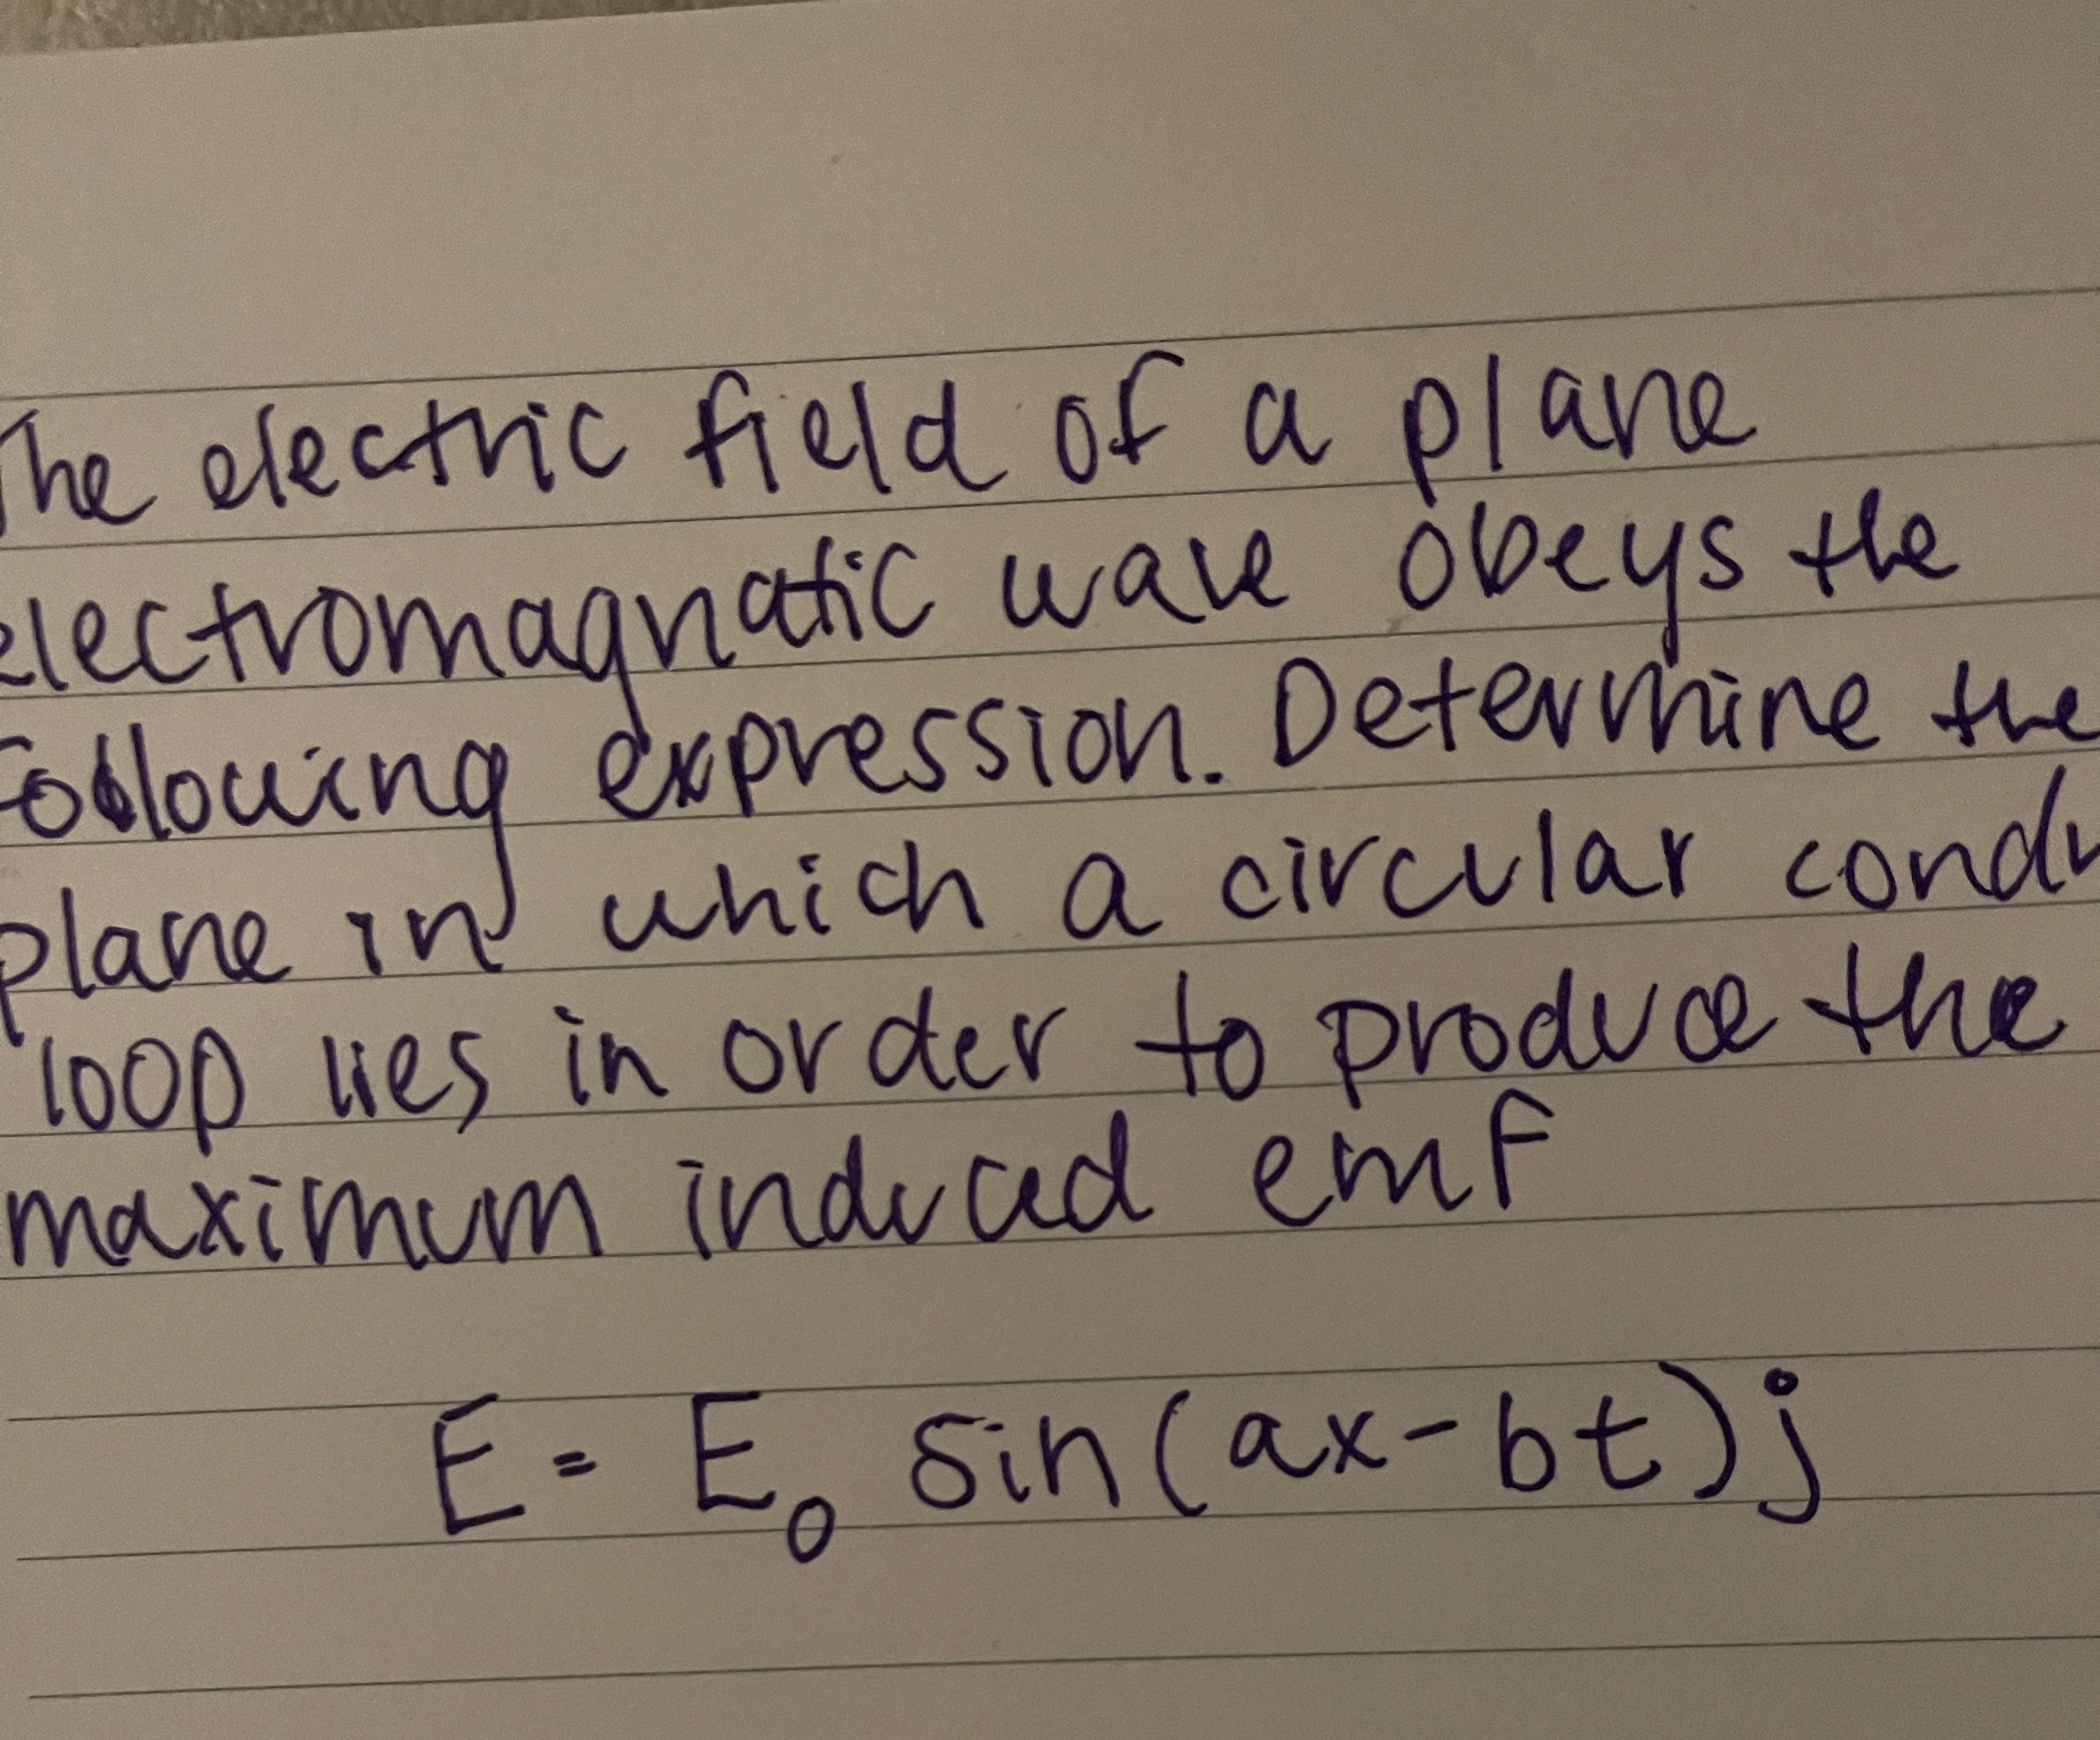 The electric field of a plane
electromagnatic wave obeys the
following expression. Determine the
plane in which a circular condu
loop lies in order to produce the
maximum induced emf
E = E₀ sin(ax-bt)j